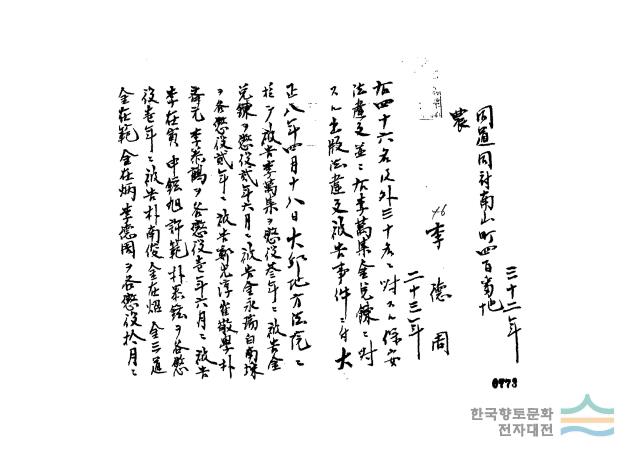 三十二年
同道同村南山町四百番地
農
46 李德周
二十三年
右四十六名及外三十名ニ対スル保安
法違反並ニ右李萬集金兌鍊ニ対
スル出版法違反被告事件ニ付大
正八年四月十八日大邱地方法院ニ
於テ被告李萬集ヲ懲役叁年ニ被告金
兌鍊ヲ懲役貳年六月ニ被告金永瑞白南埰
ヲ各懲役貳年ニ被告鄭光淳崔敬學朴
李在寅申鉉旭許範朴泰鉉ヲ各懲
役壱年ニ被告朴南俊金在炤金三道
金在範金在炳李德周ヲ各懲役拾月ニ
0773
한국향토문화
전자대전